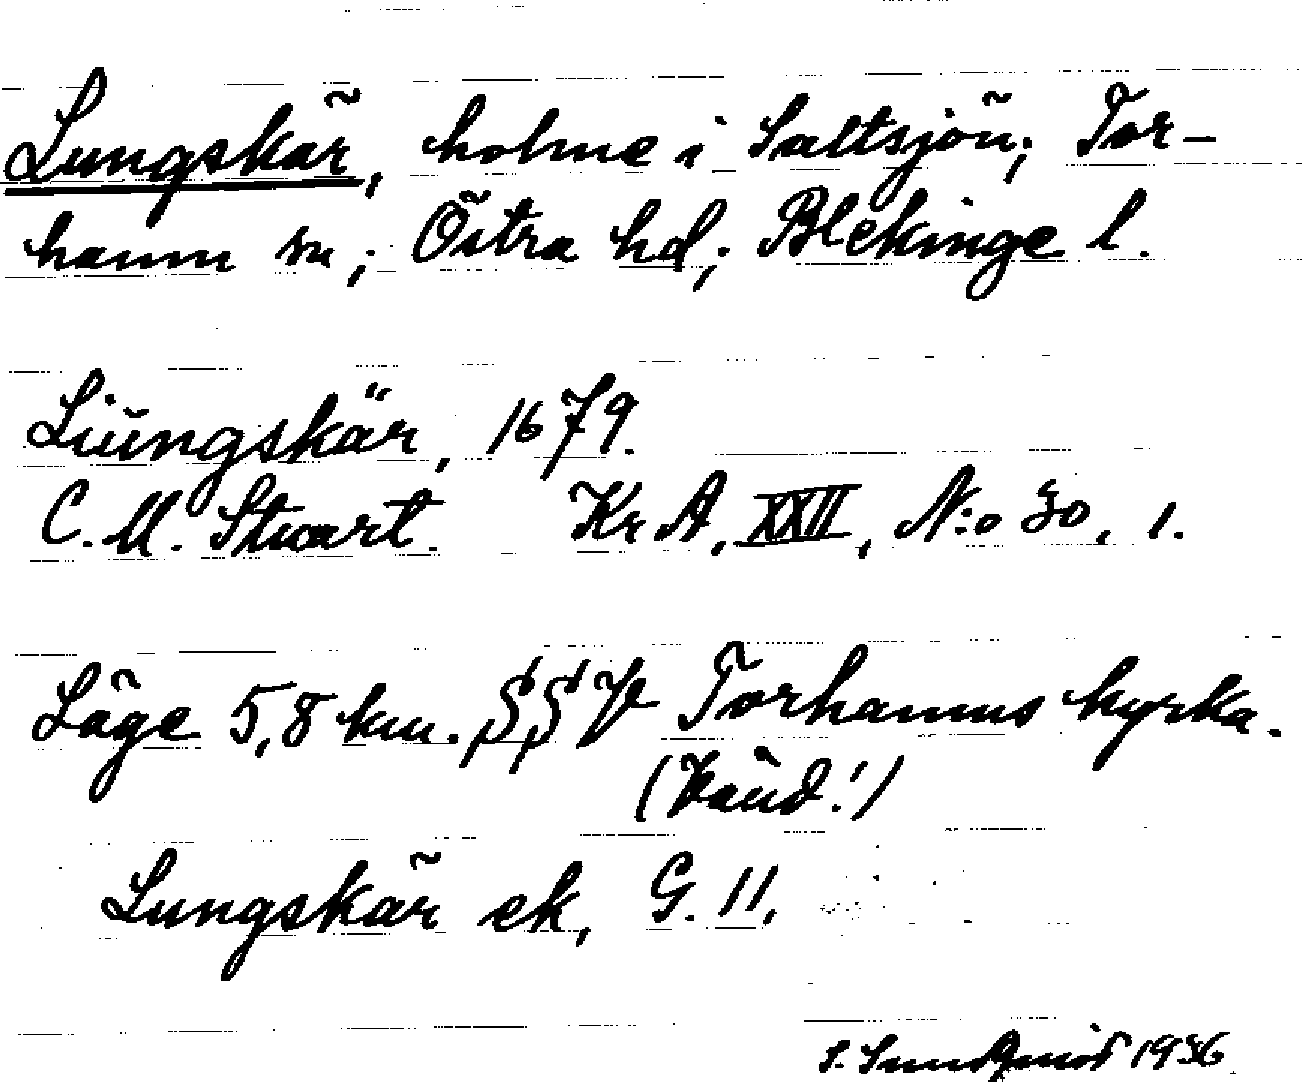 Lungskär, holme i Saltsjön; Tor-
hamn sn; Östra hd; Blekinge l.
Liüngskär, 1679.
C. M. Stuart. Kr A, XXII, N:o 30, 1.
Läge 5,8 km. SSV Torhamns kyrka.
(Känd!)
Lungskär ek, G. 11,
1936